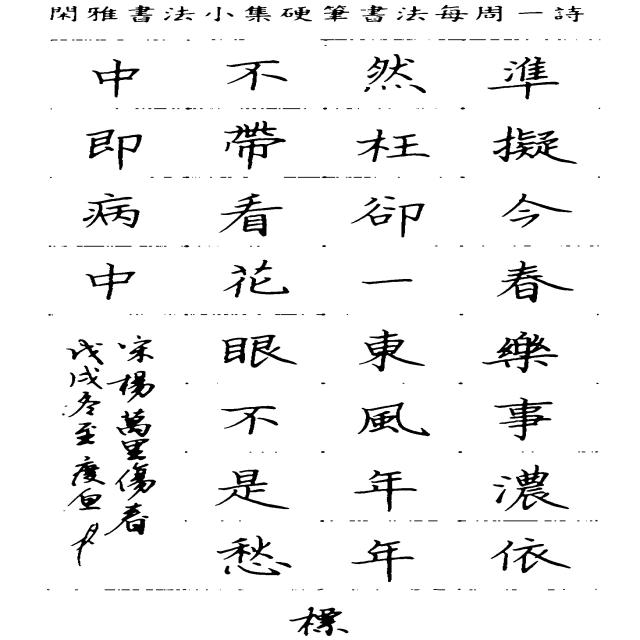 閑雅書法小集硬筆書法每周一詩
準擬今春樂事濃依
然枉卻一東風年年
不帶看花眼不是愁
中即病中
宋楊萬里傷春
戊戌冬至